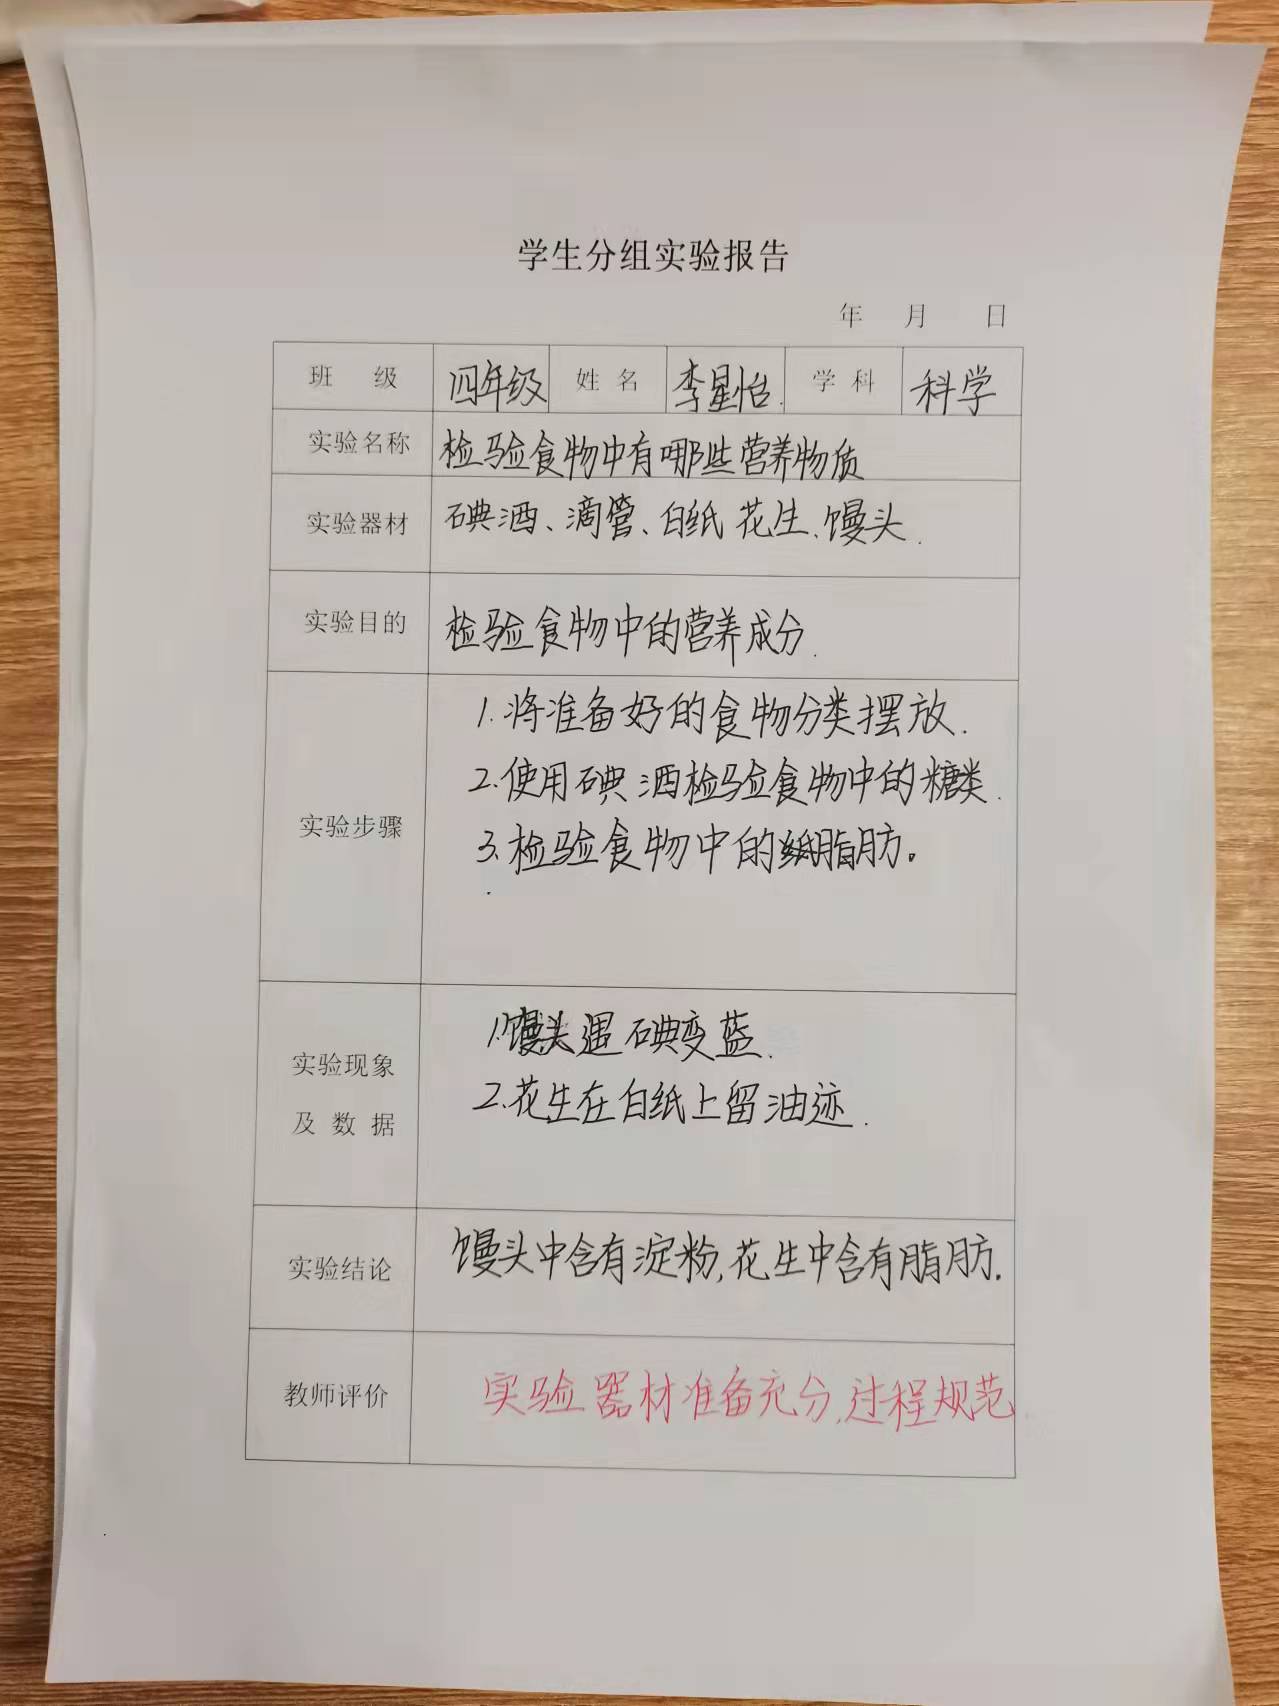 学生分组实验报告
年 月 日
班 级 四年级 姓 名 李星怡. 学 科 科学
实验名称 检验食物中有哪些营养物质
实验器材 碘酒、滴管、白纸 花生、馒头.
实验目的 检验食物中的营养成分.
1. 将准备好的食物分类摆放.
2. 使用碘酒检验食物中的糖类.
实验步骤
3. 检验食物中的脂肪。
1. 馒头遇碘变蓝.
实验现象
2. 花生在白纸上留油迹.
及 数 据
实验结论 馒头中含有淀粉,花生中含有脂肪.
教师评价 实验器材准备充分,过程规范